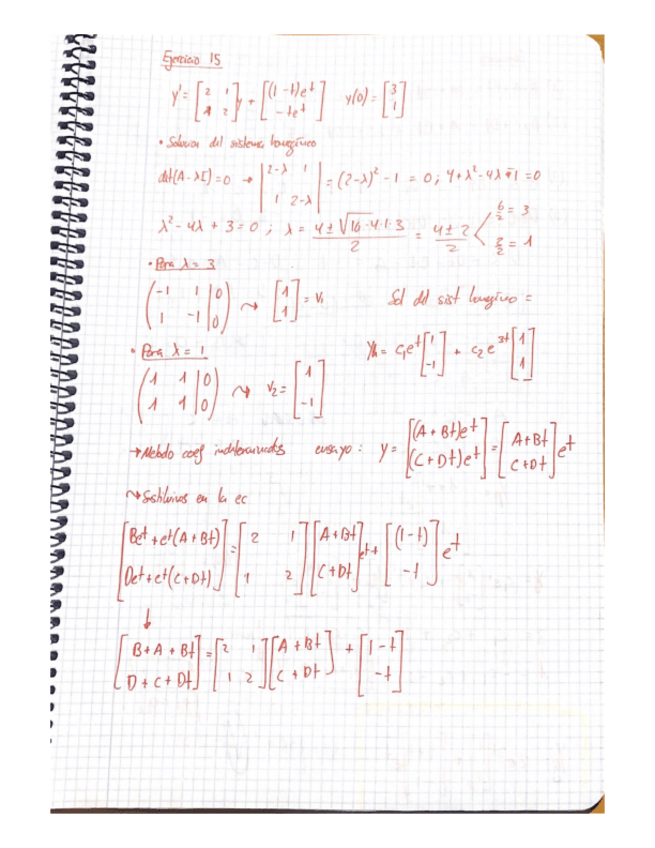 Ejercicio 15
y' = [2 1; 1 2] y + [(1-t)e^t; -te^t] y(0) = [3; 1]
• Solucion del sistema homogéneo
det(A-λI)=0 → |2-λ 1; 1 2-λ| = (2-λ)² - 1 = 0 ; 4+λ²-4λ-1 = 0
λ² - 4λ + 3 = 0 ; λ = (4 ± √(16-4·1·3))/2 = (4 ± 2)/2 < 6/2 = 3; 2/2 = 1
• Para λ = 3
(-1 1 | 0; 1 -1 | 0) ⤳ [1; 1] = v₁ Sol del sist homogéneo =
• Para λ = 1 yh = c₁e^t [1; -1] + c₂e^3t [1; 1]
(1 1 | 0; 1 1 | 0) ⤳ v₂ = [1; -1]
→ Metodo coef indeterminados ensayo: y = [(A+Bt)e^t; (C+Dt)e^t] = [A+Bt; C+Dt] e^t
⤳ Sustituimos en la ec
[Be^t + e^t(A+Bt); De^t + e^t(C+Dt)] = [2 1; 1 2] [A+Bt; C+Dt] e^t + [(1-t); -t] e^t
↓
[B+A+Bt; D+C+Dt] = [2 1; 1 2] [A+Bt; C+Dt] + [1-t; -t]